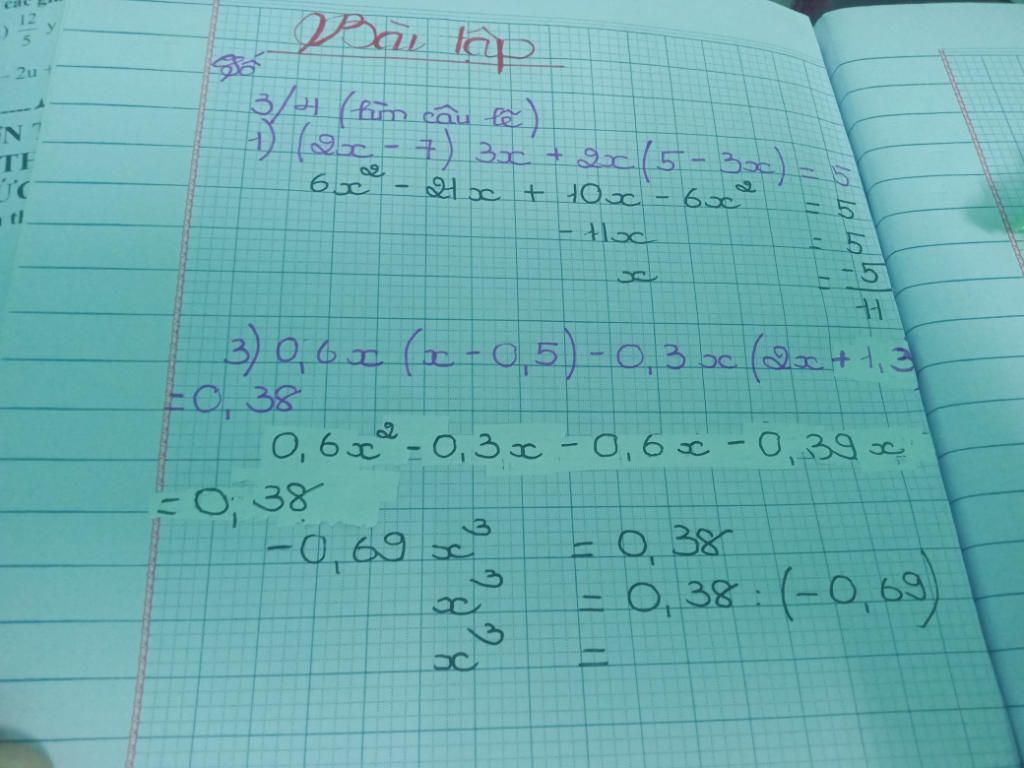 12
5
y
2u +
Bài tập
3/H (làm câu lẻ)
1) (2x - 7) 3x + 2x(5 - 3x) = 5
6x² - 21x + 10x - 6x² = 5
-11x = 5
x = -5/11
3) 0,6x (x - 0,5) - 0,3x (2x + 1,3
= 0,38
0,6x² - 0,3x - 0,6x - 0,39x
= 0,38
-0,69 x³ = 0,38
x³ = 0,38 : (-0,69)
x³ =